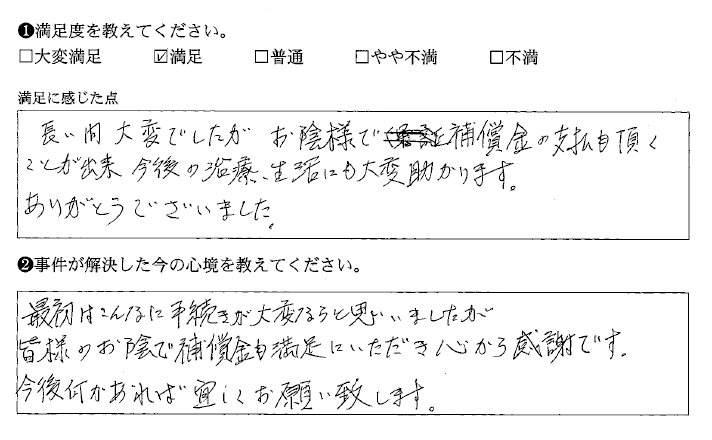 ❶満足度を教えてください。
□大変満足 ☑満足 □普通 □やや不満 □不満
満足に感じた点
長い間 大変でしたが お陰様で 補償金の支払も頂く
ことが出来 今後の治療、生活にも大変助かります。
ありがとうございました。
❷事件が解決した今の心境を教えてください。
最初はこんなに手続きが大変なるうと思いいましたが
皆様のお陰で補償金も満足にいただき心から感謝です。
今後何かあれば宜しくお願い致します。